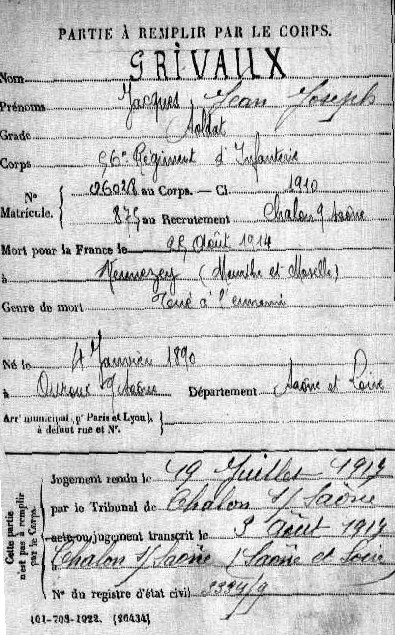 PARTIE À REMPLIR PAR LE CORPS.
GRIVAUX
Nom
Prénoms Jacques Jean Joseph
Grade Soldat
Corps 56e Régiment d'Infanterie
No Matricule. { 06028 au Corps. — Cl. 1910
875 au Recrutement Chalon s Saône
Mort pour la France le 25 Août 1914
à (Meurthe et Moselle)
Genre de mort Tué à l'ennemi
Né le 4 Janvier 1890
à Ouroux s/ Saône Département Saône et Loire
Arrt municipal (pr Paris et Lyon),
à défaut rue et No.
Cette partie n'est pas à remplir par le Corps.
Jugement rendu le 19 Juillet 1917
par le Tribunal de Chalon s/ Saône
acte ou jugement transcrit le 3 août 1917
Chalon s/ Saône (Saône et Loire
No du registre d'état civil
101-708-1922. [26434]